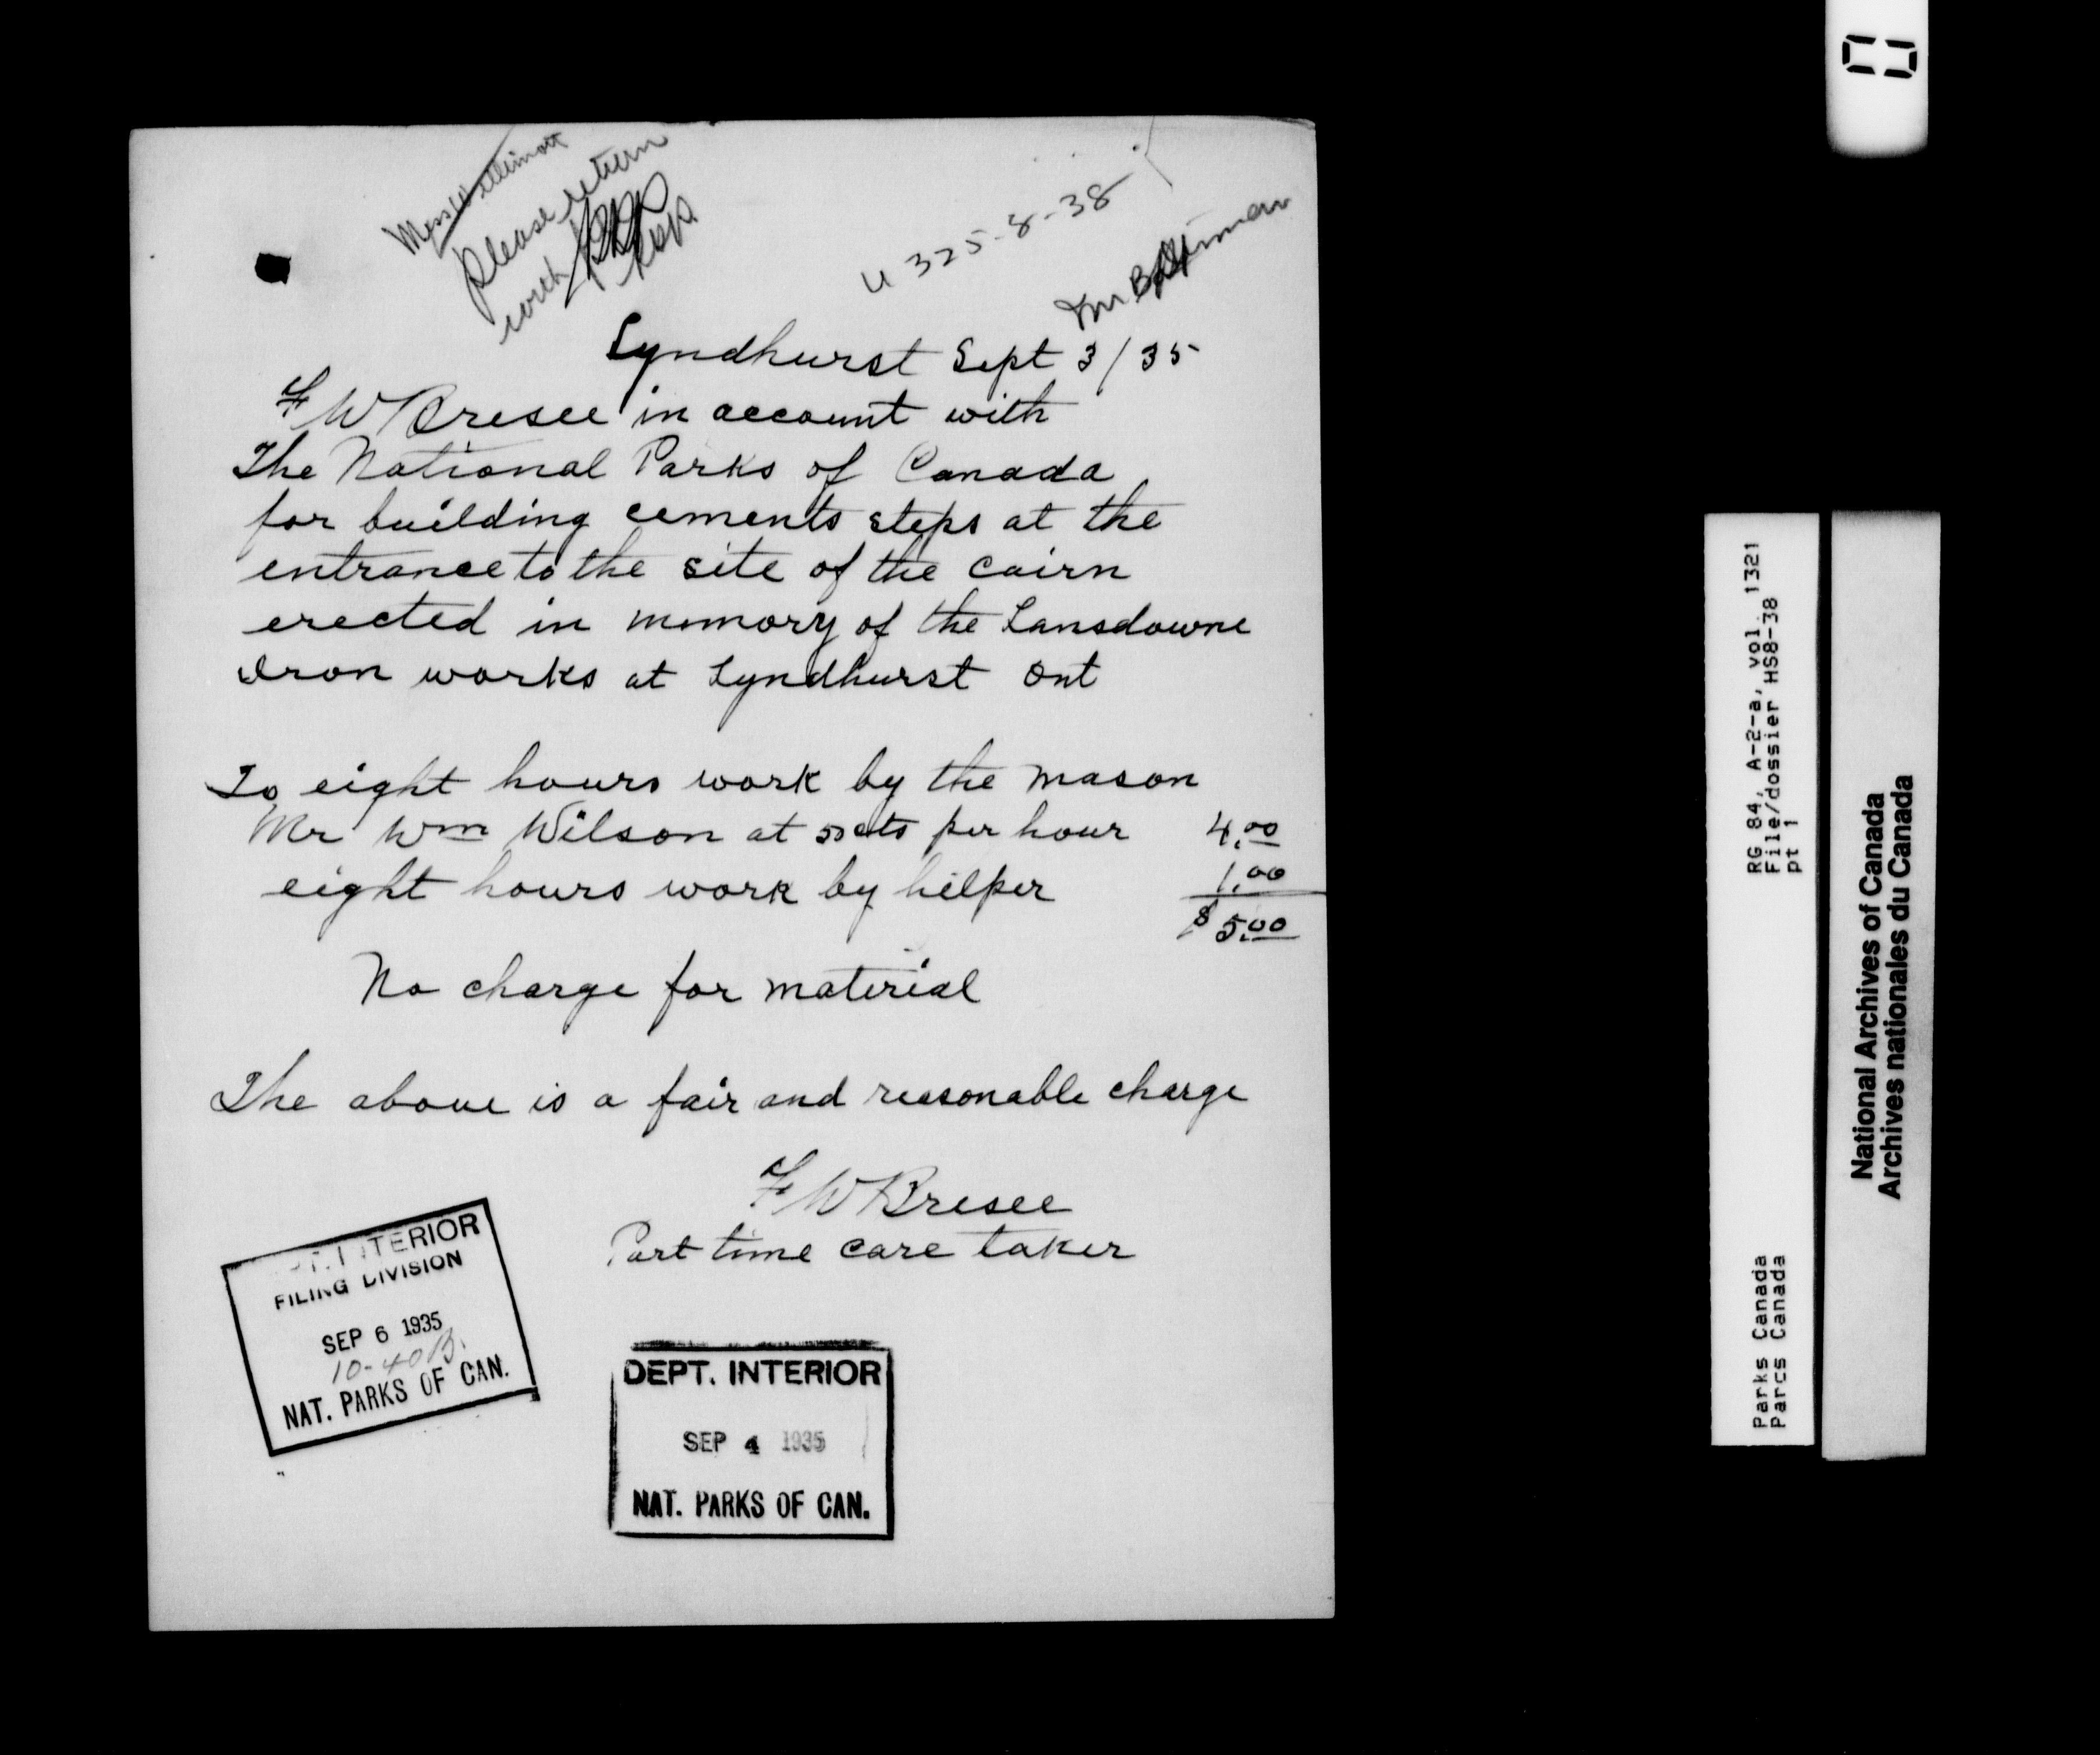 Please return
with
U 325-8-38
Lyndhurst Sept 3/35
F W Bresee in account with
The National Parks of Canada
for building cements steps at the
entrance to the site of the cairn
erected in memory of the Lansdowne
Iron works at Lyndhurst Ont
To eight hours work by the mason
Mr Wm Wilson at 50cts per hour 4.00
eight hours work by helper 1.00
$5.00
No charge for material
The above is a fair and reasonable charge
F W Bresee
Part time care taker
INTERIOR
FILING DIVISION
SEP 6 1935
10-40B.
NAT. PARKS OF CAN.
DEPT. INTERIOR
SEP 4 1935
NAT. PARKS OF CAN.
RG 84, A-2-a, vol. 1321
File/dossier HS8-38
pt 1
Parks Canada
Parcs Canada
National Archives of Canada
Archives nationales du Canada